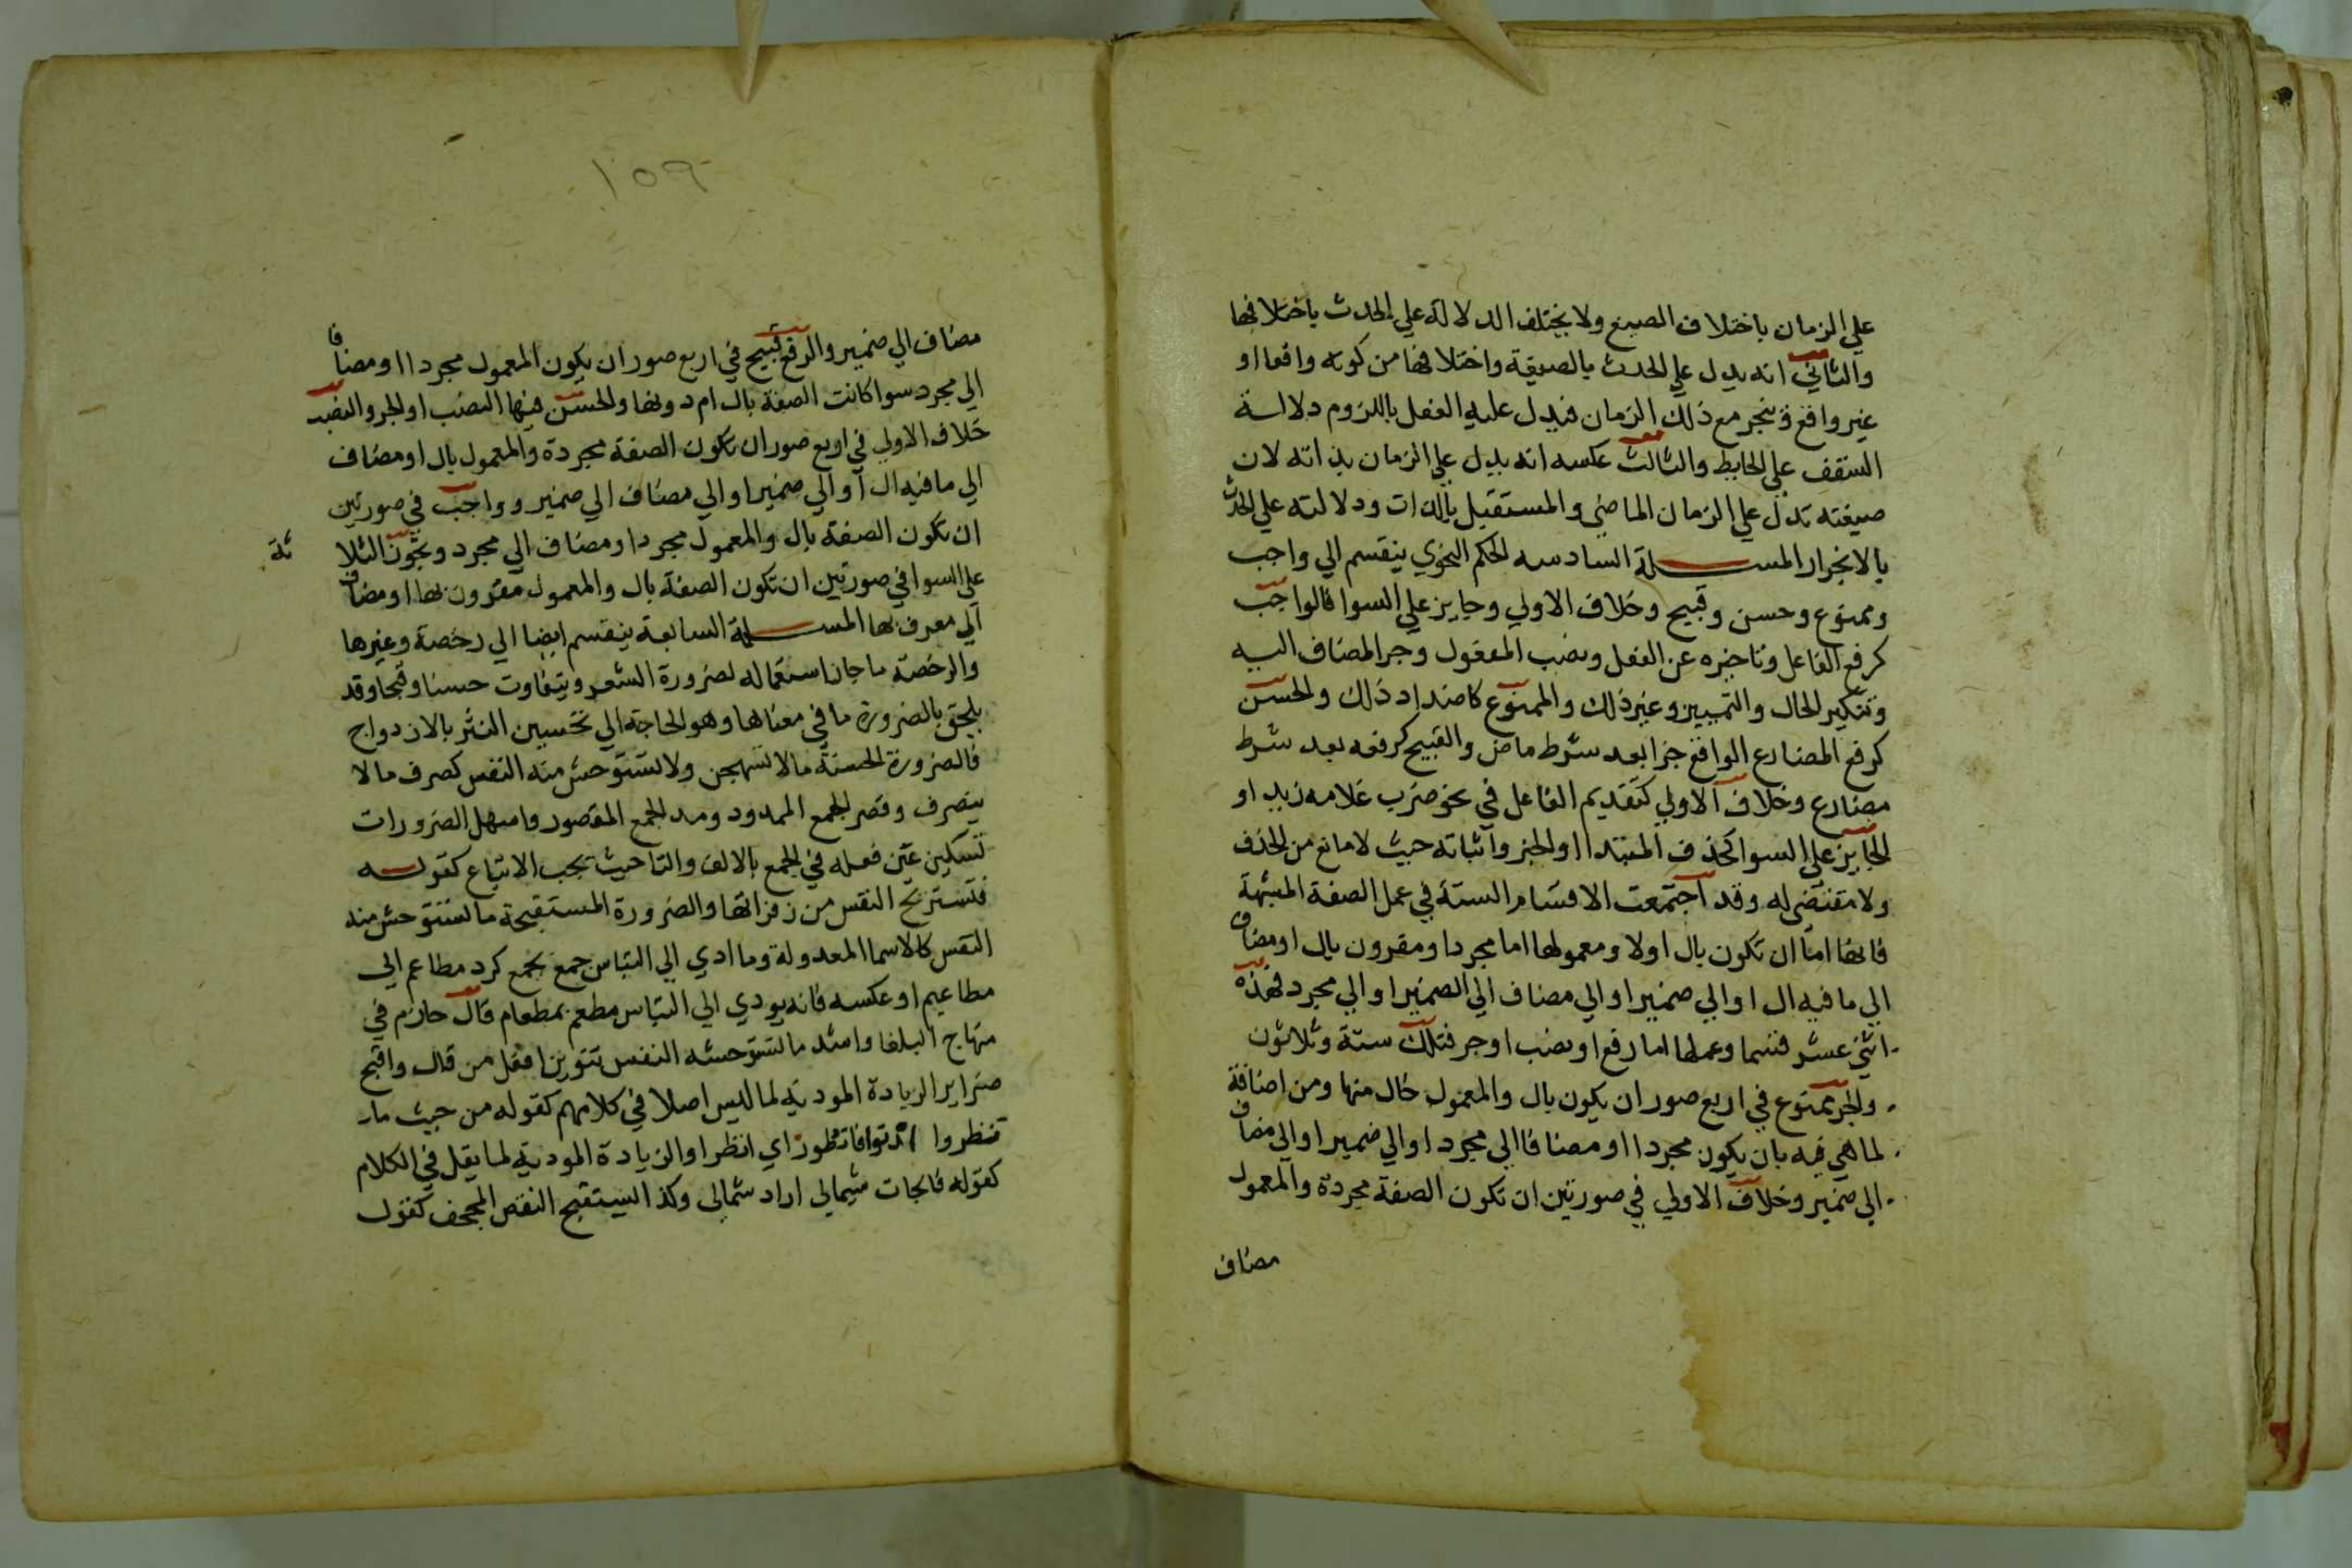 علي الزمان باختلاف الصيغ ولا يختلف الدلالة علي الحدث باختلافها
والثاني انه يدل علي الحدث بالصيغة واختلافها من كونه واقعا او
غير واقع فينجر مع ذلك الزمان فيدل عليه الفعل باللزوم دلالة
السقف علي الحايط والثالث عكسه انه يدل علي الزمان بذاته لان
صيغته تدل علي الزمان الماضي والمستقبل بالذات ودلالته علي الحدث
بالانجرار المسئلة السادسه الحكم النحوي ينقسم الي واجب
وممنوع وحسن وقبيح وخلاف الاولي وجايز علي السوا فالواجب
كرفع الفاعل وتاخيره عن الفعل ونصب المفعول وجر المضاف اليه
وتنكير الحال والتمييز وغير ذلك والممنوع كاضداد ذلك والحسن
كرفع المضارع الواقع جزا بعد شرط ماض والقبيح كرفعه بعد شرط
مضارع وخلاف الاولي كتقديم الفاعل في نحو ضرب غلامه زيد او
الجايز علي السوا كحذف المبتدا او الخبر واثباته حيث لا مانع من الحذف
ولا مقتضي له وقد اجتمعت الاقسام الستة في عمل الصفة المشبهة
فانها اما ان تكون بال اولا ومعمولها اما مجرد او مقرون بال او مضاف
الي ما فيه ال او الي ضمير او الي مضاف الي الضمير او الي مجرد فهذه
اثني عشر قسما وعملها اما رفع او نصب او جر فتلك ستة وثلاثون
والجر ممنوع في اربع صور ان يكون بال والمعمول خال منها ومن اضافة
لما هي فيه بان يكون مجردا او مضافا الي مجرد او الي ضمير او الي مضاف
الي ضمير وخلاف الاولي في صورتين ان تكون الصفة مجردة والمعمول
مضاف
١٥٩
مضاف الي ضمير والرفع قبيح في اربع صور ان يكون المعمول مجردا او مضافا
الي مجرد سوا كانت الصفة بال ام دونها والحسن فيها النصب او الجر والنصب
خلاف الاولي في اربع صور ان تكون الصفة مجردة والمعمول بال او مضاف
الي ما فيه ال او الي ضمير او الي مضاف الي ضمير وواجب في صورتين
ان تكون الصفة بال والمعمول مجرد او مضاف الي مجرد ويجوز الثلاثة
علي السوا في صورتين ان تكون الصفة بال والمعمول مقرون بها او مضاف
الي معرف بها المسئلة السابعة ينقسم ايضا الي رخصة وغيرها
والرخصة ما جاز استعماله لضرورة الشعر ويتفاوت حسنا وقبحا وقد
يلحق بالضرورة ما في معناها وهو الحاجة الي تحسين النثر بالازدواج
فالضرورة الحسنة ما لا تستهجن ولا تستوحش منه النفس كصرف ما لا
ينصرف وقصر الجمع الممدود ومد الجمع المقصور واسهل الضرورات
تسكين عين فعله في الجمع بالالف والتا حيث يجب الاتباع كقوله
فتستريح النفس من زفراتها والضرورة المستقبحة ما تستوحش منه
النفس كالاسما المعدولة وما ادي الي التباس جمع بجمع كرد مطاعم الي
مطاعيم او عكسه فانه يودي الي التباس مطعم بمطعام قال حازم في
منهاج البلغا واشد ما تستوحشه النفس تنوين افعل من قال واقبح
ضراير الزيادة المودية لما ليس اصلا في كلامهم كقوله من حيث ما
تنظروا ادنوا فانظور اي انظر او الزيادة المودية لما يقل في الكلام
كقوله فانجات شيمالي اراد شمالي وكذا يستقبح النقص المجحف كقول